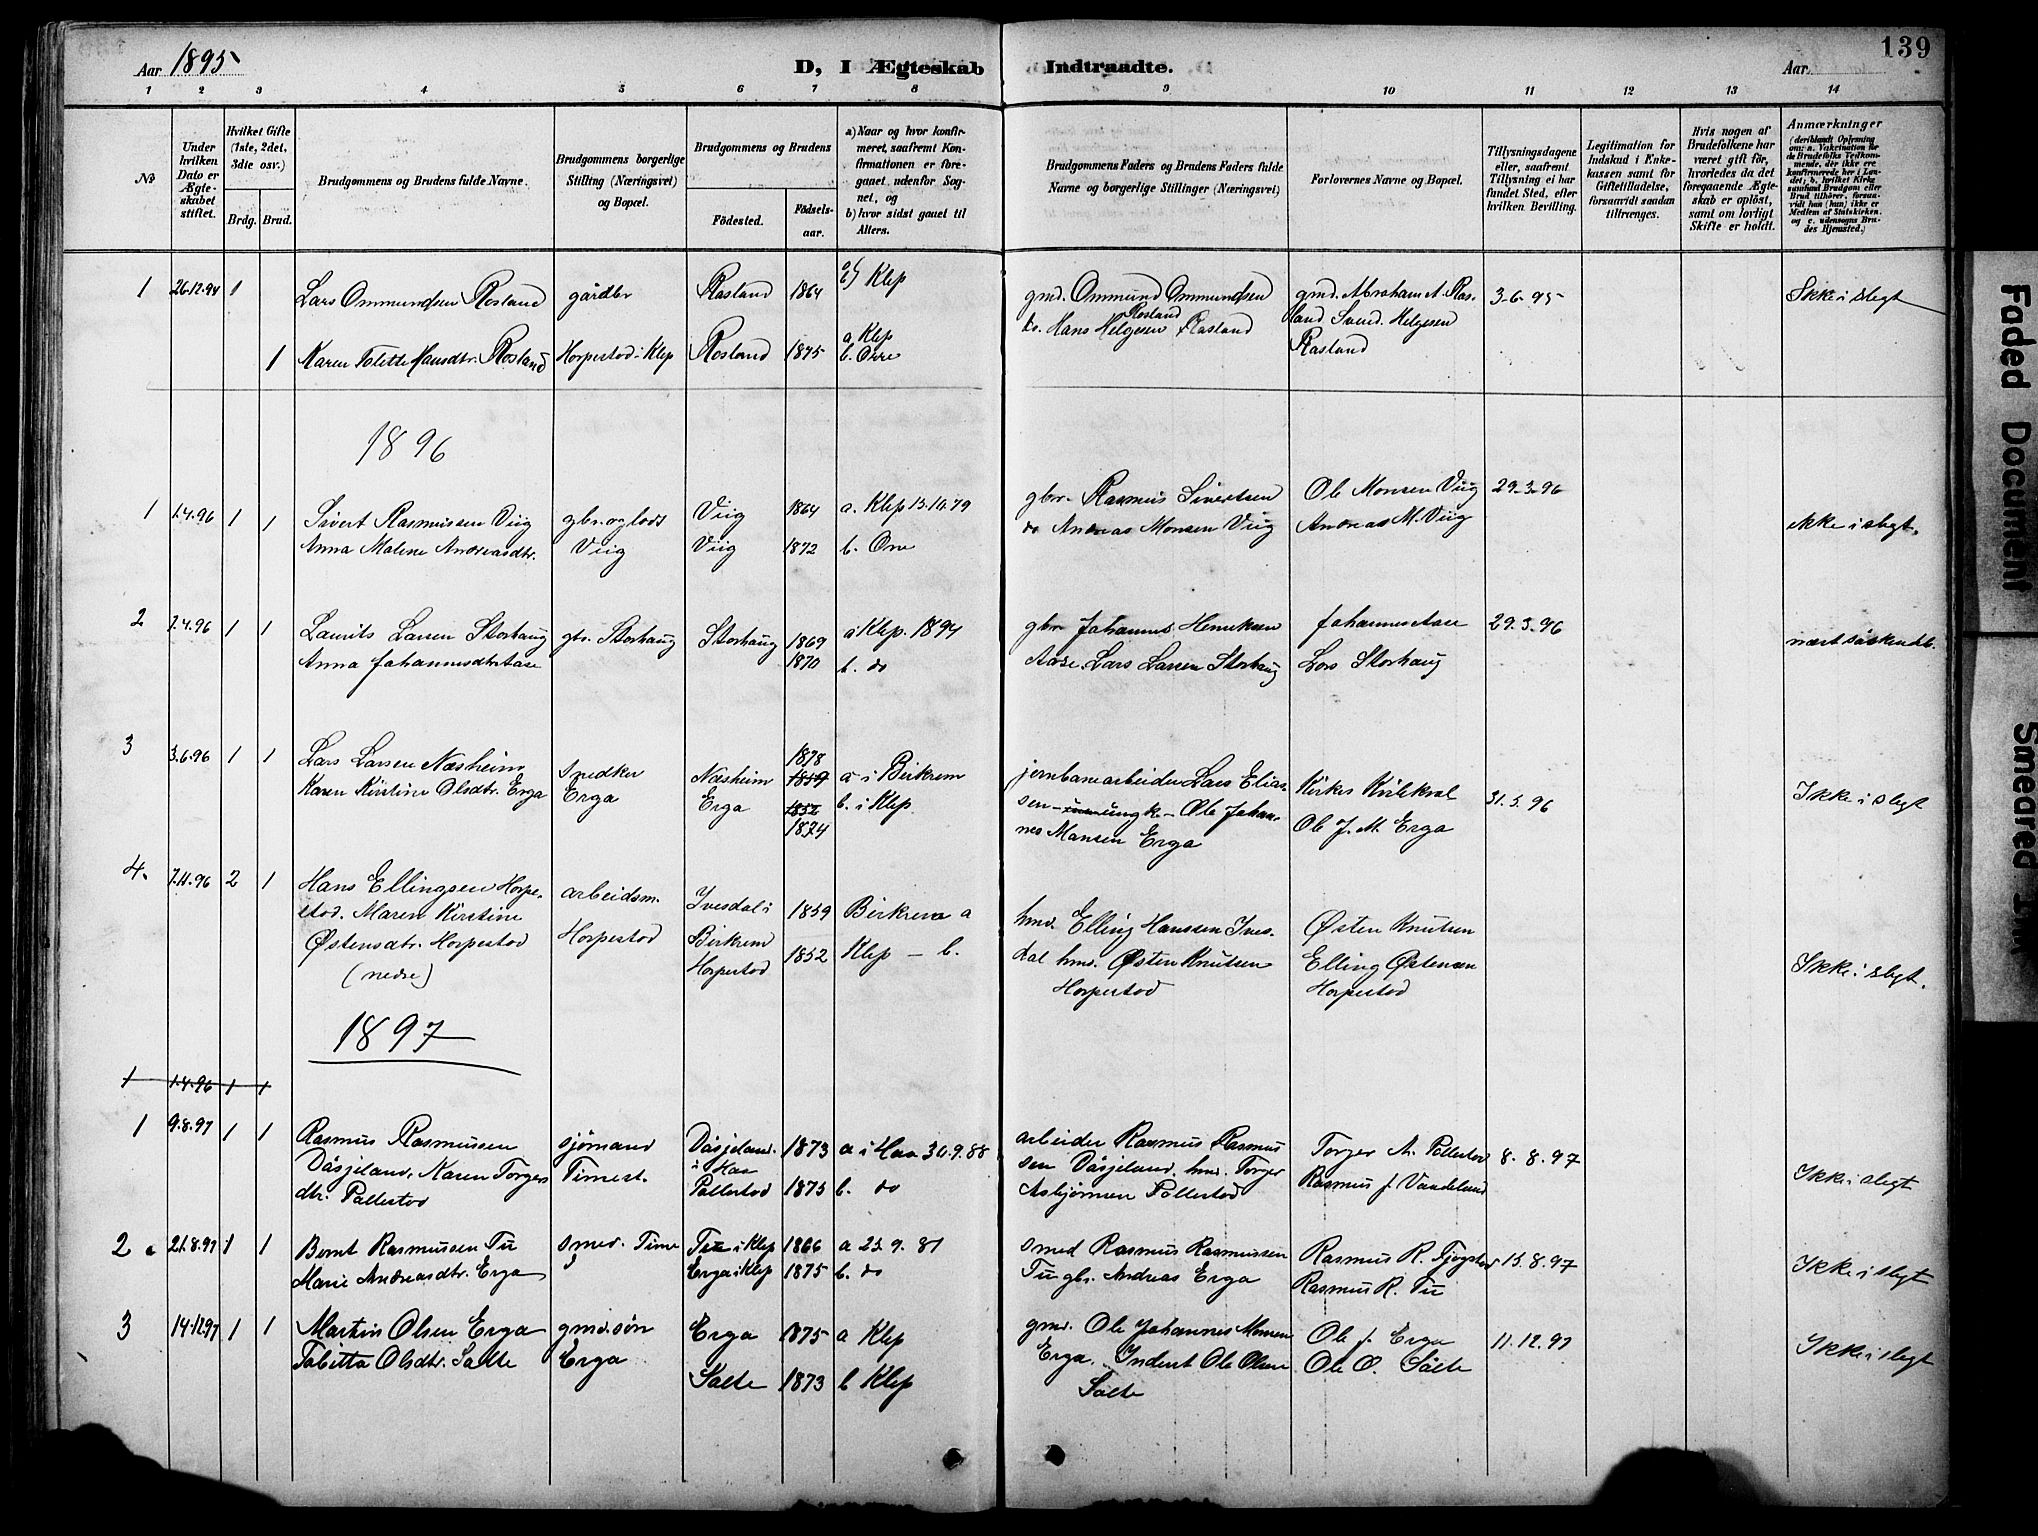 139
Aar 1895
D, I Ægteskab Indtraadte.
Aar
1 2 3 4 5 6 7 8 9 10 11 12 13 14
No
Under hvilken Dato er Ægteskabet stiftet.
Hvilket Gifte (1ste, 2det, 3die osv.)
Brdg. Brud.
Brudgommens og Brudens fulde Navne.
Brudgommens borgerlige Stilling (Næringsvei) og Bopæl.
Brudgommens og Brudens
Födested. Födselsaar.
a) Naar og hvor konfirmeret, saafremt Konfirmationen er foregaaet udenfor Sognet, og
b) hvor sidst gaaet til Alters.
Brudgommens Faders og Brudens Faders fulde Navne og borgerlige Stillinger (Næringsvei)
Forlovernes Navne og Bopæl.
Tillysningsdagene eller, saafremt Tillysning ei har fundet Sted, efter hvilken Bevilling.
Legitimation for Indskud i Enkekassen samt for Giftetilladelse, forsaavidt saadan tiltrænges.
Hvis nogen af Brudefolkene har været gift før, hvorledes da det foregaaende Ægteskab er opløst, samt om lovligt Skifte er holdt.
Anmærkninger
1 26.12.94 1 Lars Ommundsen Rosland gårdbr Rasland 1864 Klep gmd. Ommund Ommundsen Rosland gmd. Abraham A. Rasland 3-6-95 Ikke i slegt
1 Karen Tolette Hansdtr. Rosland Horpestod i Klep Rosland 1875 a. Klep b. Orre do. Hans Helgesen Rasland Svend Helgesen Rasland
1896
1 1.4.96 1 1 Sivert Rasmussen Viig gbr. og lods Viig 1864 a. Klep 15.10.79 gbr. Rasmus Sivertsen Ole Monsen Viig 29-3-96
Anna Malene Andreasdtr. Viig Viig 1872 b. Orre do Andreas Monsen Viig Andreas M. Viig ikke i slegt.
2 7.4.96 1 1 Laurits Larsen Storhaug gbr. Storhaug Storhaug 1869 a Klep. 1894 gbr Johannes Henriksen Johannes Aase 29.3.96
Anna Johannesdtr Aase 1870 b. do Aase. Lars Larsen Storhaug Lars Storhaug
3 3.6.96 1 1 Lars Larsen Næsheim Snedker Næsheim 1878 1859 a i Birkrem jernbanearbeider Lars Eliassen 31.5.96 Ikke i slegt
Karen Kirstine Olsdtr. Erga Erga Erga 1852 1874 b. i Klep ungk. – Ole Johannes Mansen Erga Ole J. M. Erga
4. 7.11.96 2 1 Hans Ellingsen Horpestod. Maren Kirstine Østensdtr. Horpestod (nedre) arbeidsm. Horpestod Ivesdal i Birkrem Horpestod 1859 1852 Birkrem a Klep – b. hmd. Elling Hanssen Ivesdal hmd. Østen Knutsen Horpestod Østen Knutsen Elling Østensen Horpestod Ikke i slegt.
1897
1 1.4.96 1 1
1 9.8.97 1 1 Rasmus Rasmussen Dåsjeland, Karen Torgersdtr. Pollestod sjømand Timest. Dåsjeland i Haa Pollestod 1873 1875 a i Haa 30.9.88 b. do arbeider Rasmus Rasmussen Dåsjeland. hmd. Torger Asbjørnsen Pollestod Torger A. Pollestod Rasmus J. Vandelund 8.8.97 Ikke i slegt
2 21.8.97 1 1 Bernt Rasmussen Tu smed. Time Tu i Klep 1866 a 25.9.81 smed Rasmus Rasmussen Rasmus R. Fjogstad 15.8.97 Ikke i slegt
Marie Andreasdtr. Erga Erga i Klep 1875 b. do Tu gbr. Andreas Erga Rasmus R. Tu
3 14.12.97 1 1 Martin Olsen Erga gmd. søn Erga 1875 a Klep gmd. Ole Johannes Monsen Ole J. Erga 11.12.97 Ikke i slegt
Tabitta Olsdtr. Salte Erga Salte 1873 b Klep Erga. Inderst Ole Olsen Salte Ole O. Salte
Faded Document
Smeared Ink